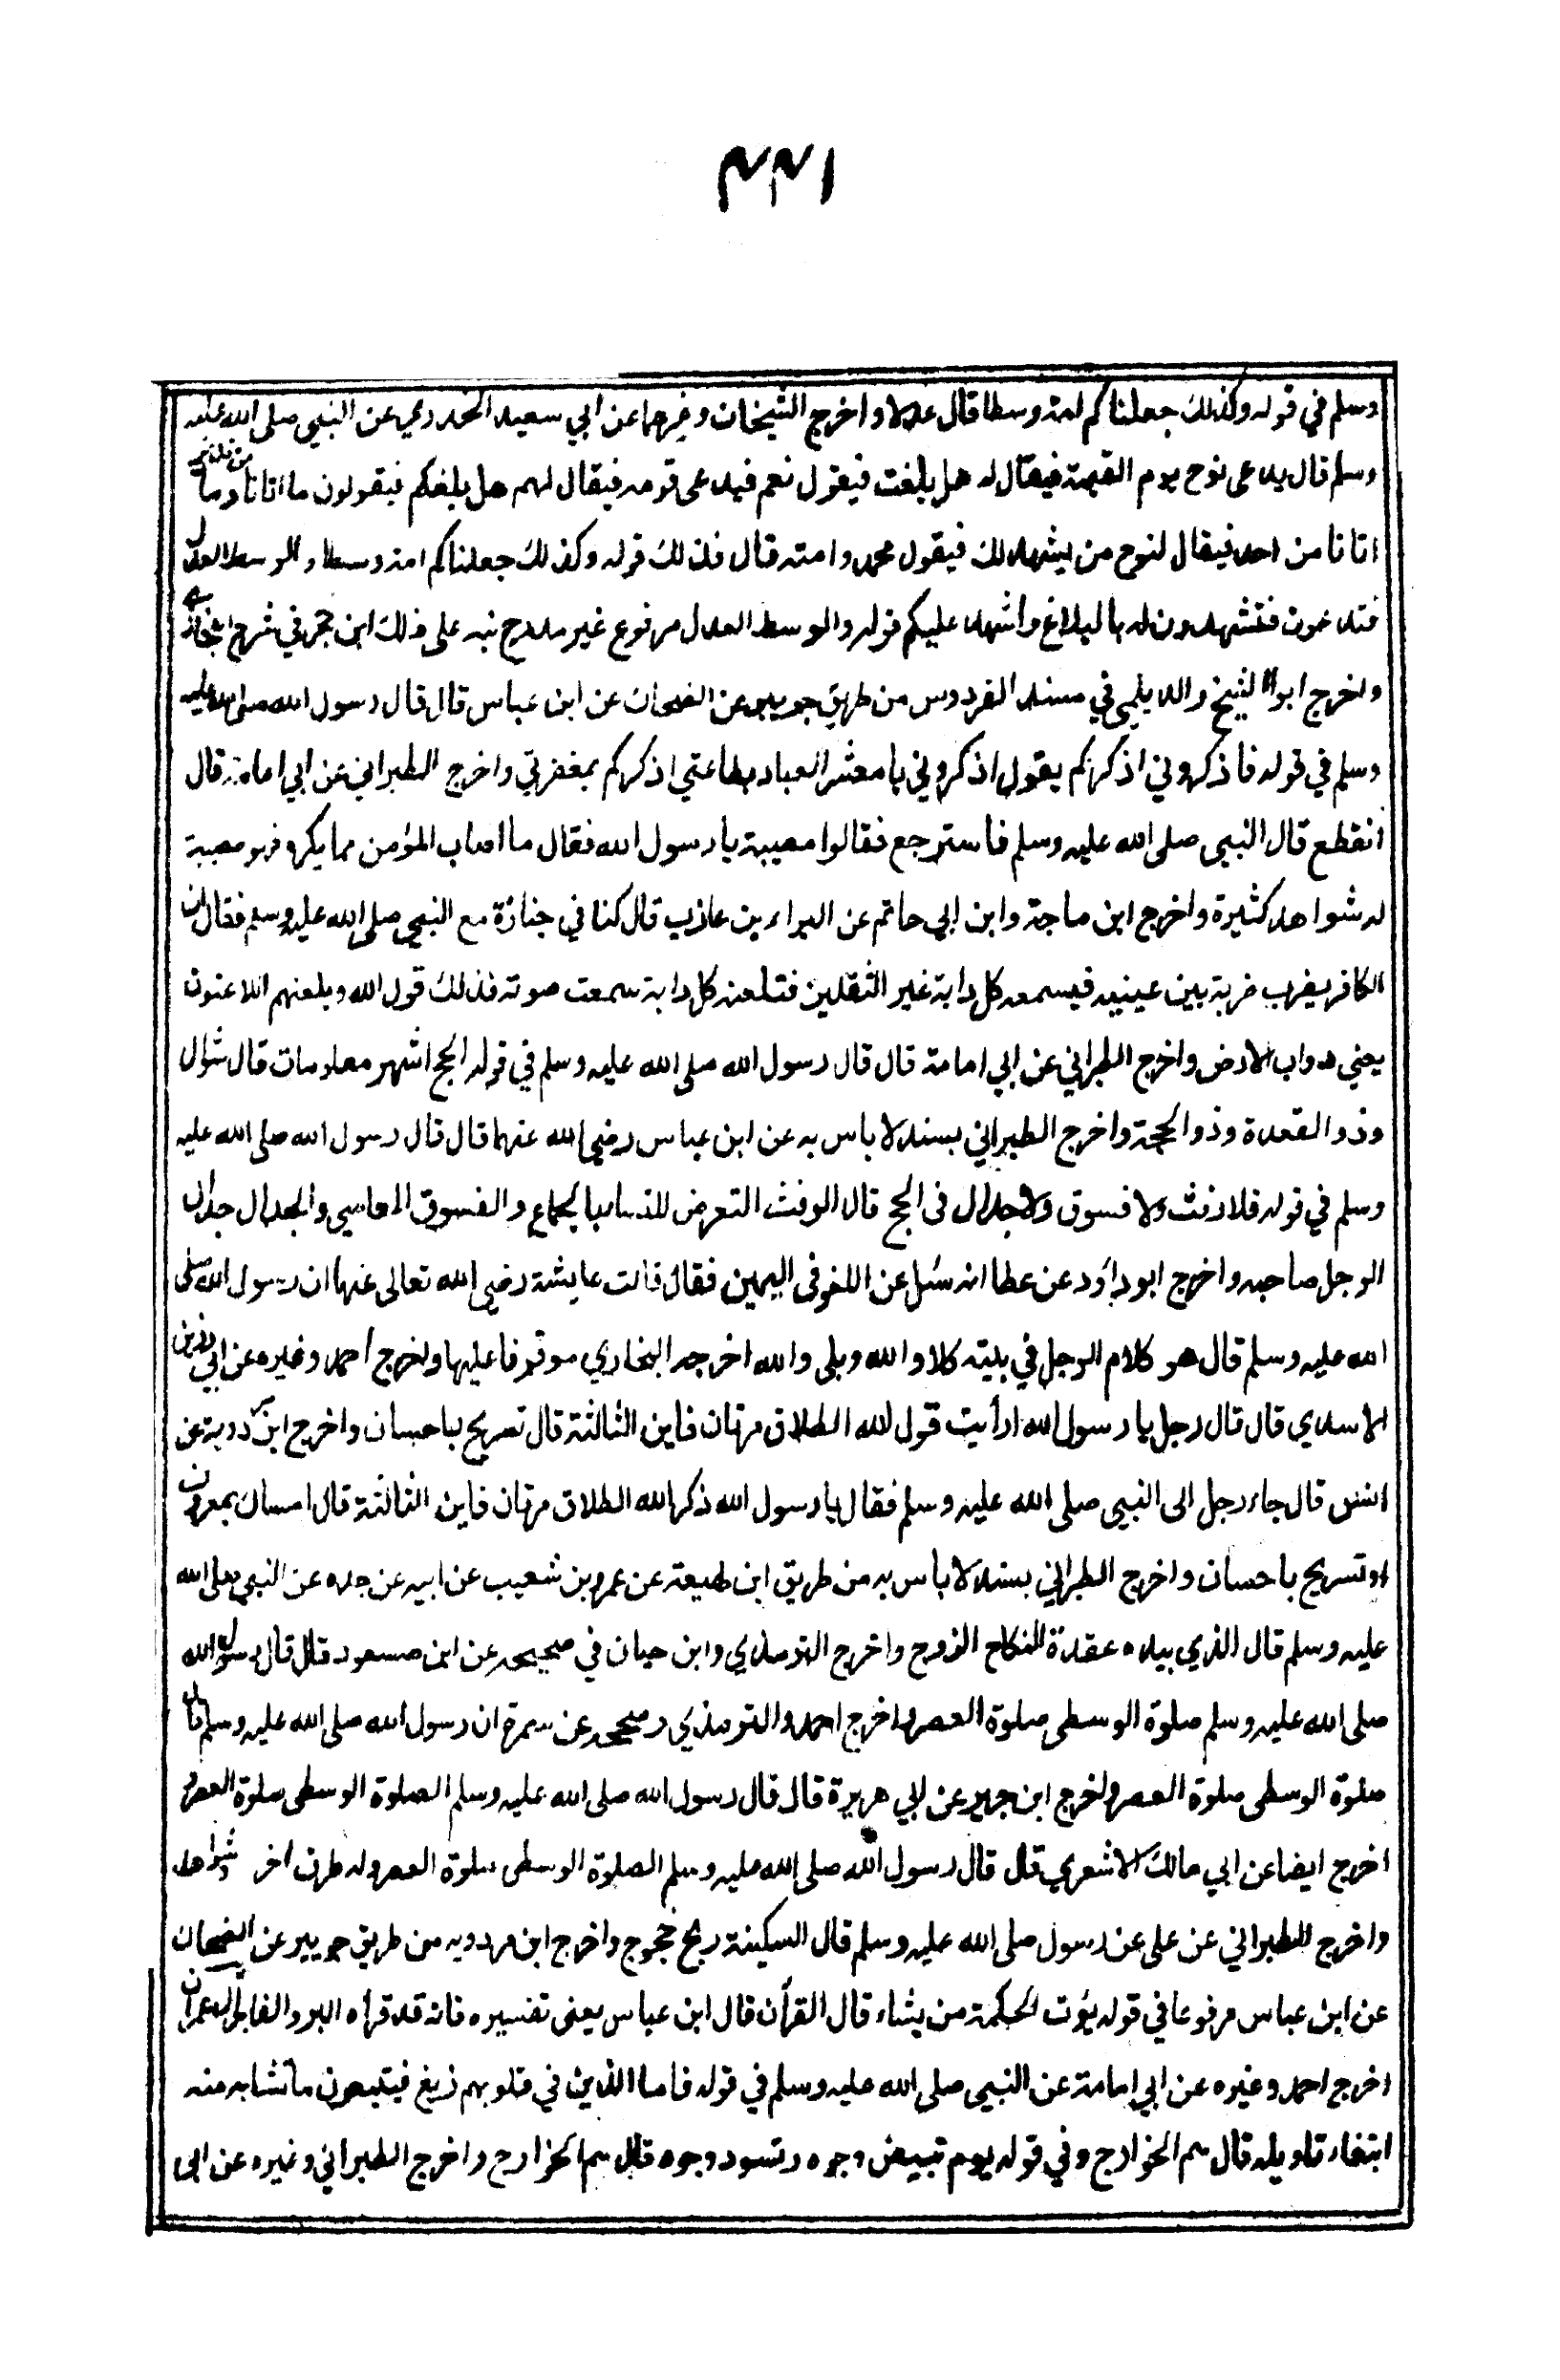 ٤٤١
وسلم في قوله وكذلك جعلناكم امة وسطا قال عدلا واخرج الشيخان وغيرهما عن ابي سعيد الخدري عن النبي صلى الله عليه
وسلم قال يدعى نوح يوم القيمة فيقال له هل بلغت فيقول نعم فيدعى قومه فيقال لهم هل بلغكم فيقولون ما اتانا من نذير وما
اتانا من احد فيقال لنوح من يشهد لك فيقول محمد وامته قال فذلك قوله وكذلك جعلناكم امة وسطا والوسط العدل
فتدعون فتشهدون له بالبلاغ واشهد عليكم قوله والوسط العدل مرفوع غير مدرج نبه على ذلك ابن حجر في شرح البخاري
واخرج ابو الشيخ والديلمي في مسند الفردوس من طريق جويبر عن الضحاك عن ابن عباس قال قال رسول الله صلى الله عليه
وسلم في قوله فاذكروني اذكركم يقول اذكروني يا معشر العباد بطاعتي اذكركم بمغفرتي واخرج الطبراني عن ابي امامة قال
انقطع قال النبي صلى الله عليه وسلم فاسترجع فقالوا مصيبة يا رسول الله فقال ما اصاب المؤمن مما يكره فهو مصيبة
له شواهد كثيرة واخرج ابن ماجة وابن ابي حاتم عن البراء بن عازب قال كنا في جنازة مع النبي صلى الله عليه وسلم فقال ان
الكافر يضرب ضربة بين عينيه فيسمعه كل دابة غير الثقلين فتلعنه كل دابة سمعت صوته فذلك قول الله ويلعنهم اللاعنون
يعني دواب الارض واخرج الطبراني عن ابي امامة قال قال رسول الله صلى الله عليه وسلم في قوله الحج اشهر معلومات قال شوال
وذو القعدة وذو الحجة واخرج الطبراني بسند لا باس به عن ابن عباس رضي الله عنهما قال قال رسول الله صلى الله عليه
وسلم في قوله فلا رفث ولا فسوق ولا جدال في الحج قال الرفث التعرض للنساء بالجماع والفسوق المعاصي والجدال جدال
الرجل صاحبه واخرج ابو داود عن عطا انه سئل عن اللغو في اليمين فقال قالت عايشة رضي الله تعالى عنها ان رسول الله صلى
الله عليه وسلم قال هو كلام الرجل في بيته كلا والله وبلى والله اخرجه البخاري موقوفا عليها واخرج احمد وغيره عن ابي رزين
الاسدي قال قال رجل يا رسول الله ارأيت قول الله الطلاق مرتان فاين الثالثة قال تسريح باحسان واخرج ابن مردويه عن
انس قال جاء رجل الى النبي صلى الله عليه وسلم فقال يا رسول الله ذكر الله الطلاق مرتان فاين الثالثة قال امساك بمعروف
او تسريح باحسان واخرج الطبراني بسند لا باس به من طريق ابن لهيعة عن عمرو بن شعيب عن ابيه عن جده عن النبي صلى الله
عليه وسلم قال الذي بيده عقدة النكاح الزوج واخرج الترمذي وابن حبان في صحيحه عن ابن مسعود قال قال رسول الله
صلى الله عليه وسلم صلوة الوسطى صلوة العصر واخرج احمد والترمذي وصححه عن سمرة ان رسول الله صلى الله عليه وسلم قال
صلوة الوسطى صلوة العصر واخرج ابن جرير عن ابي هريرة قال قال رسول الله صلى الله عليه وسلم الصلوة الوسطى صلوة العصر و
اخرج ايضا عن ابي مالك الاشعري قال قال رسول الله صلى الله عليه وسلم الصلوة الوسطى صلوة العصر وله طرق اخر وشواهد
واخرج الطبراني عن علي عن رسول صلى الله عليه وسلم قال السكينة ريح خجوج واخرج ابن مردويه من طريق جويبر عن الضحاك
عن ابن عباس مرفوعا في قوله يؤت الحكمة من يشاء قال القرآن قال ابن عباس يعني تفسيره فانه قد قرأه البر والفاجر ال عمران
اخرج احمد وغيره عن ابي امامة عن النبي صلى الله عليه وسلم في قوله فاما الذين في قلوبهم زيغ فيتبعون ما تشابه منه
ابتغاء تاويله قال هم الخوارج وفي قوله يوم تبيض وجوه وتسود وجوه قال هم الخوارج واخرج الطبراني وغيره عن ابي